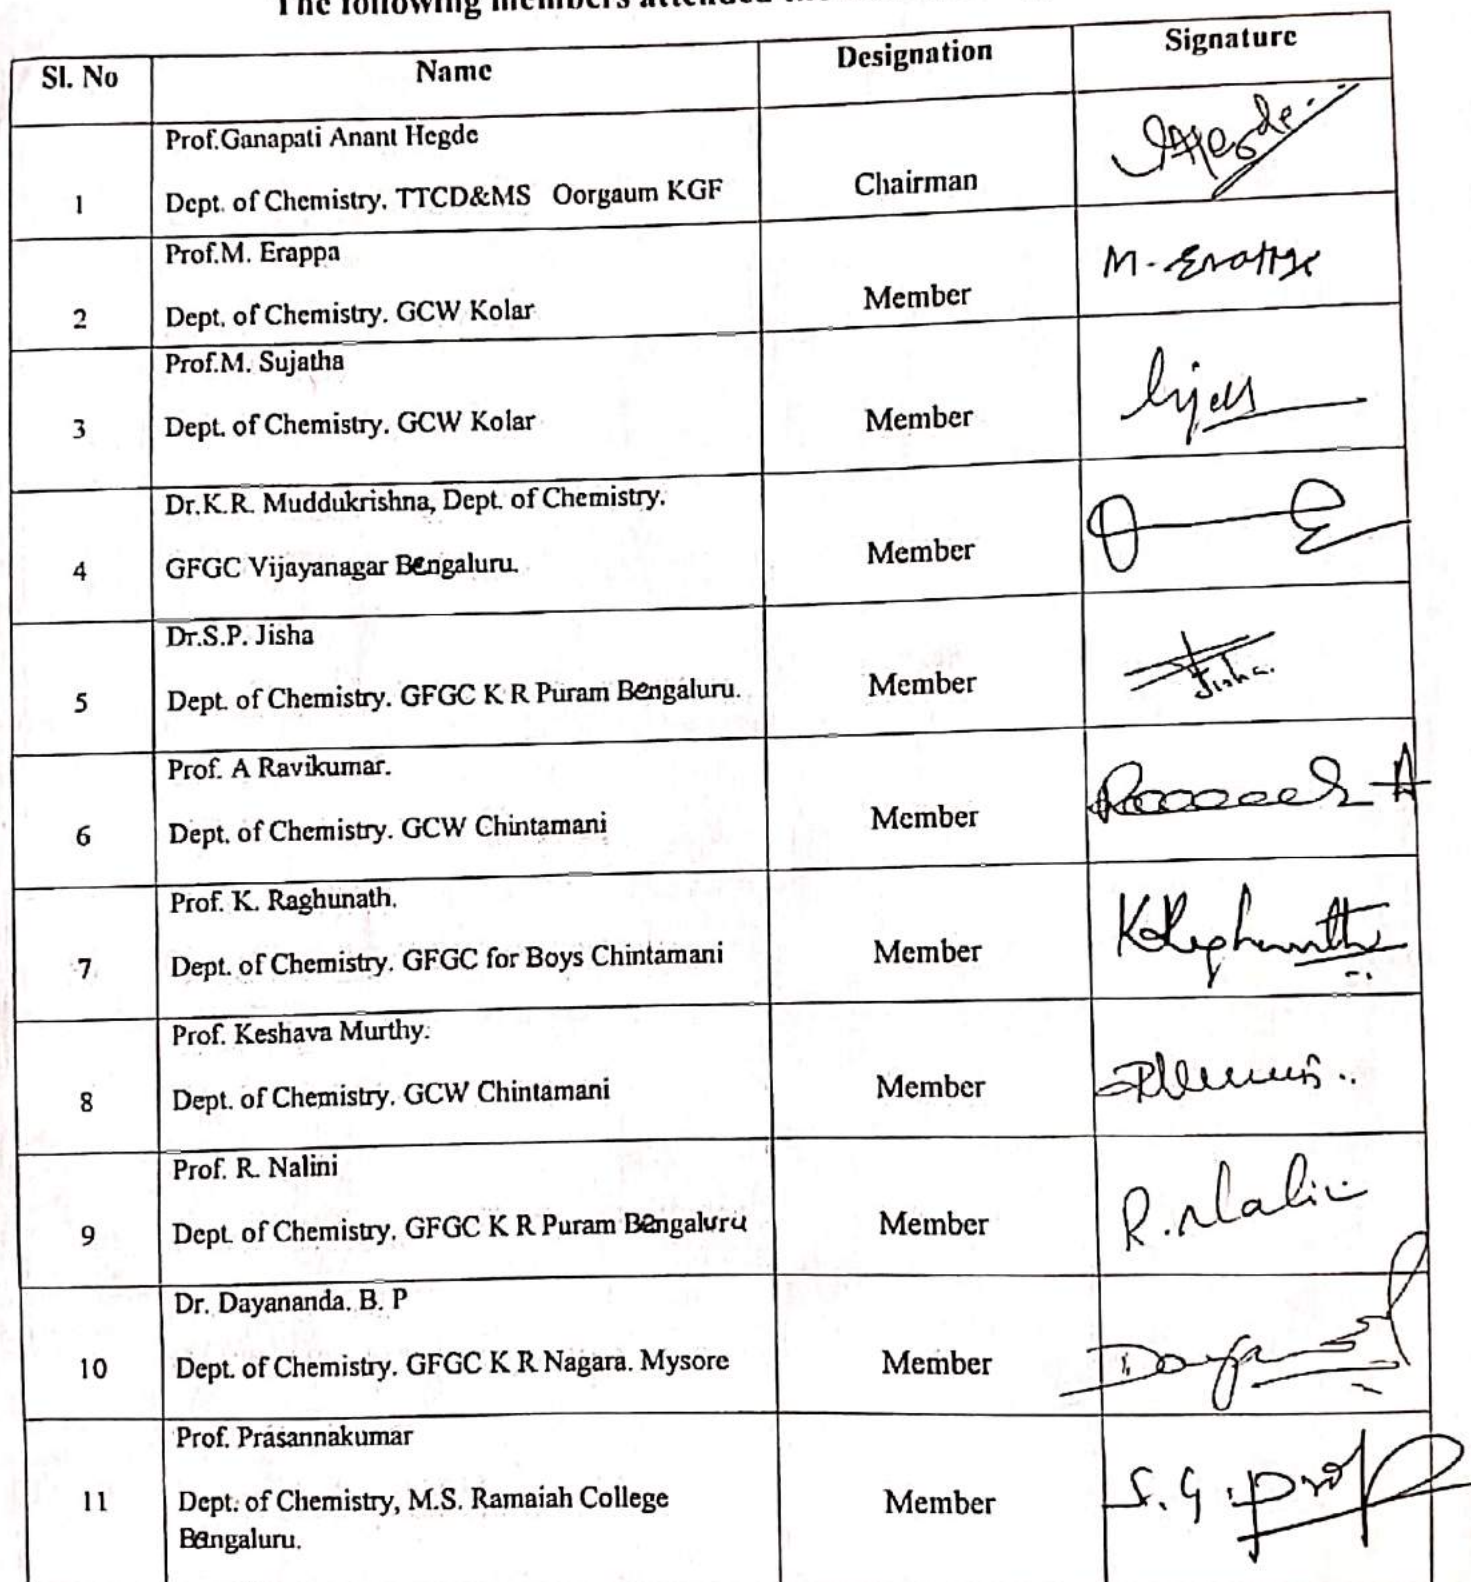 The following members attended
Sl. No Name Designation Signature
Prof.Ganapati Anant Hegde
1 Dept. of Chemistry. TTCD&MS Oorgaum KGF Chairman
Prof.M. Erappa M. Erappa
2 Dept. of Chemistry. GCW Kolar Member
Prof.M. Sujatha
3 Dept. of Chemistry. GCW Kolar Member
Dr.K.R. Muddukrishna, Dept. of Chemistry.
4 GFGC Vijayanagar Bengaluru. Member
Dr.S.P. Jisha Jisha
5 Dept. of Chemistry. GFGC K R Puram Bengaluru. Member
Prof. A Ravikumar.
6 Dept. of Chemistry. GCW Chintamani Member
Prof. K. Raghunath. KRaghunath
7 Dept. of Chemistry. GFGC for Boys Chintamani Member
Prof. Keshava Murthy.
8 Dept. of Chemistry. GCW Chintamani Member
Prof. R. Nalini R. Nalini
9 Dept. of Chemistry. GFGC K R Puram Bengaluru Member
Dr. Dayananda. B. P
10 Dept. of Chemistry. GFGC K R Nagara. Mysore Member
Prof. Prasannakumar
11 Dept. of Chemistry, M.S. Ramaiah College Member S.G.
Bengaluru.